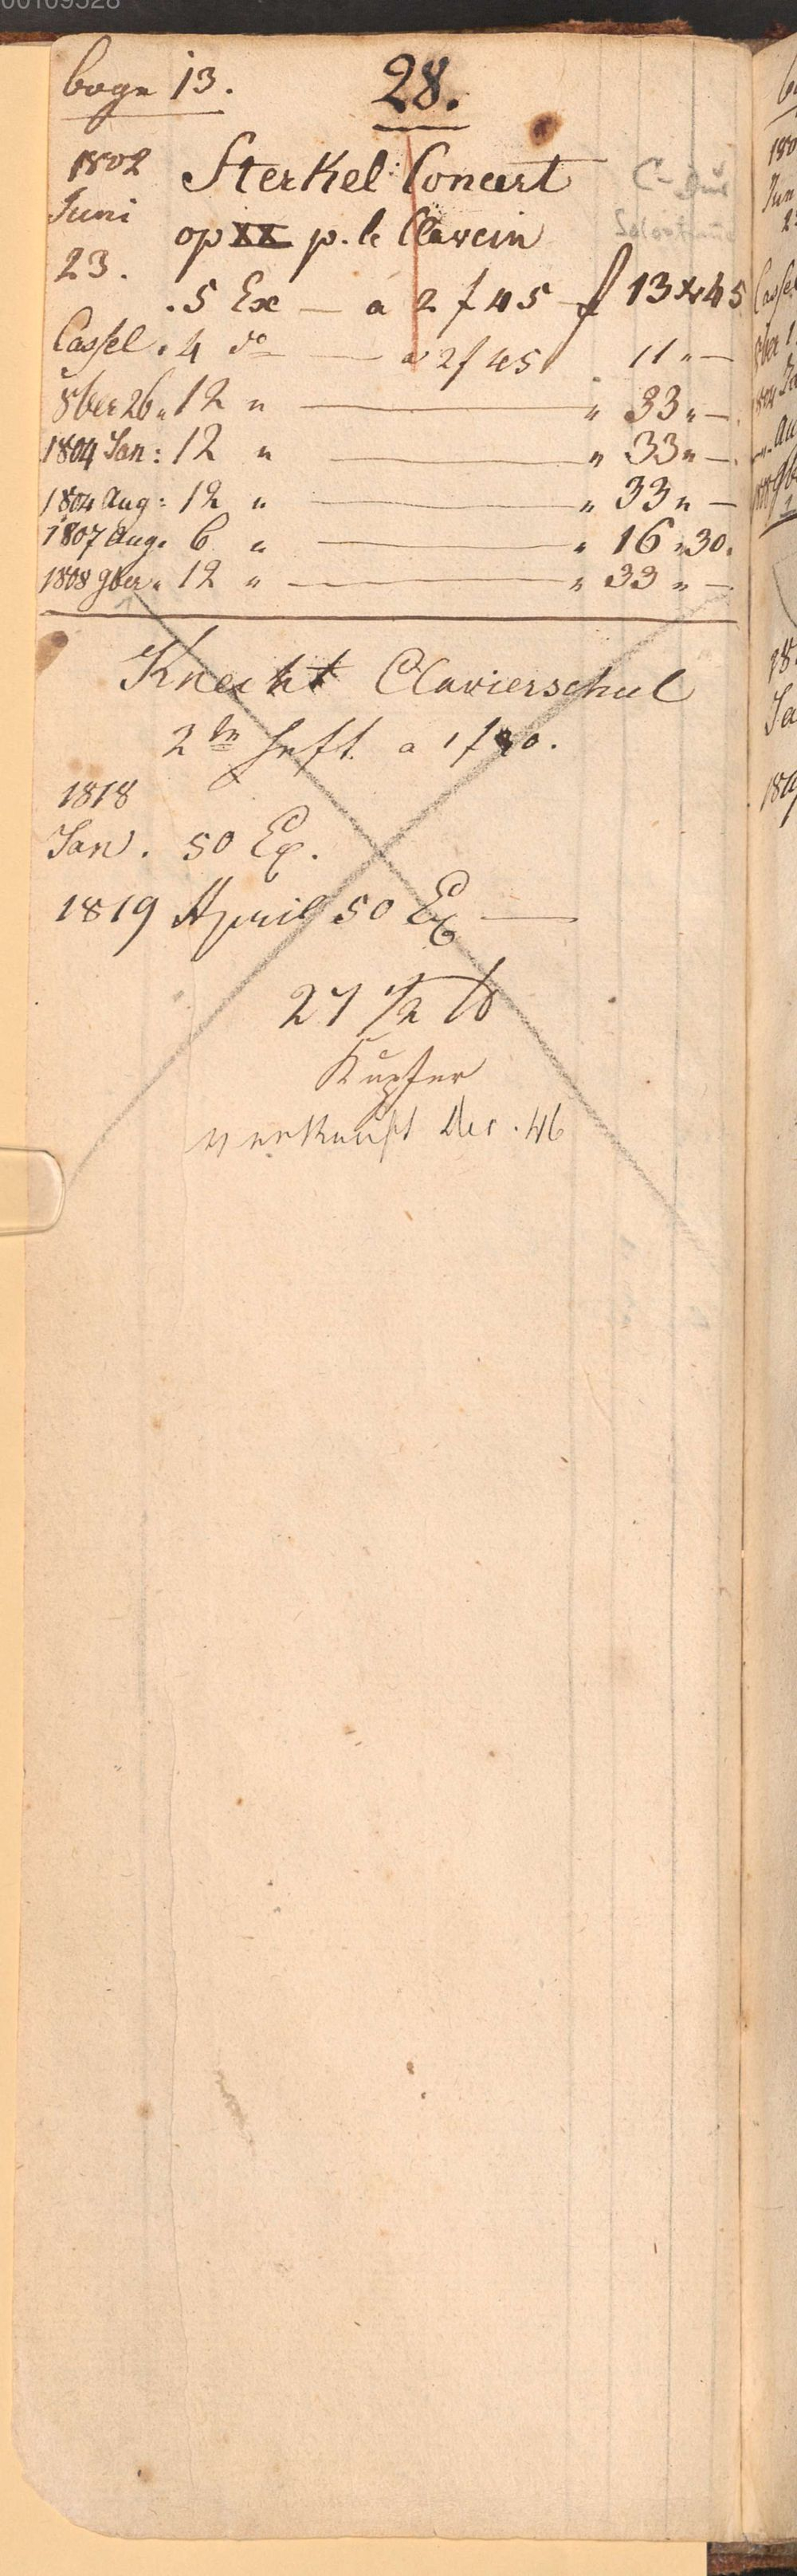 boge 13. 28.
1802 Sterkel Concert C-Dur
Juni op XX p. le Clavecin
23. 5 Ex — a 2 f 45 — f 13 xr 45
Cassel. 4 do — a 2 f 45 11 " —
8ber 26 " 12 " — " 33 " —
1804 Jan: 12 " — " 33 " —
1804 Aug: 12 " — " 33 " —
1807 Aug. 6 " — " 16 " 30.
1808 9ber " 12 " — " 33 " —
Knecht Clavierschul
2tn Heft a 1 f 20.
1818
Jan. 50 Ex.
1819 April 50 Ex —
27 1/2 lb
Kupfer
verkauft Dec. 46